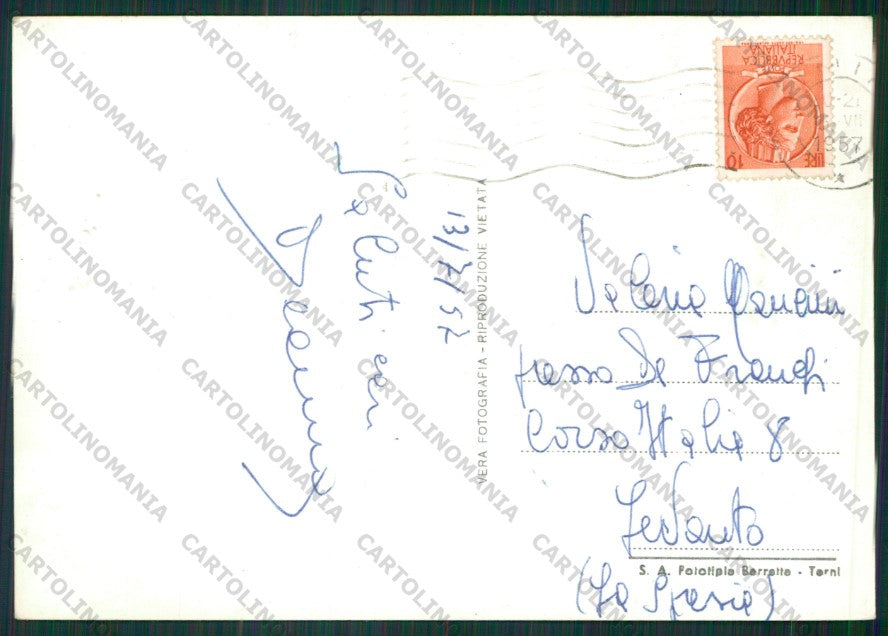 13/7/57
Saluti cari
VERA FOTOGRAFIA - RIPRODUZIONE VIETATA
REPVBBLICA
ITALIANA
LIRE 10
1957
Valeria Mancini
presso De Franchi
Corso Italia 8
Levanto
(La Spezia)
S. A. Fototipia Berretta - Terni
CARTOLINOMANIA